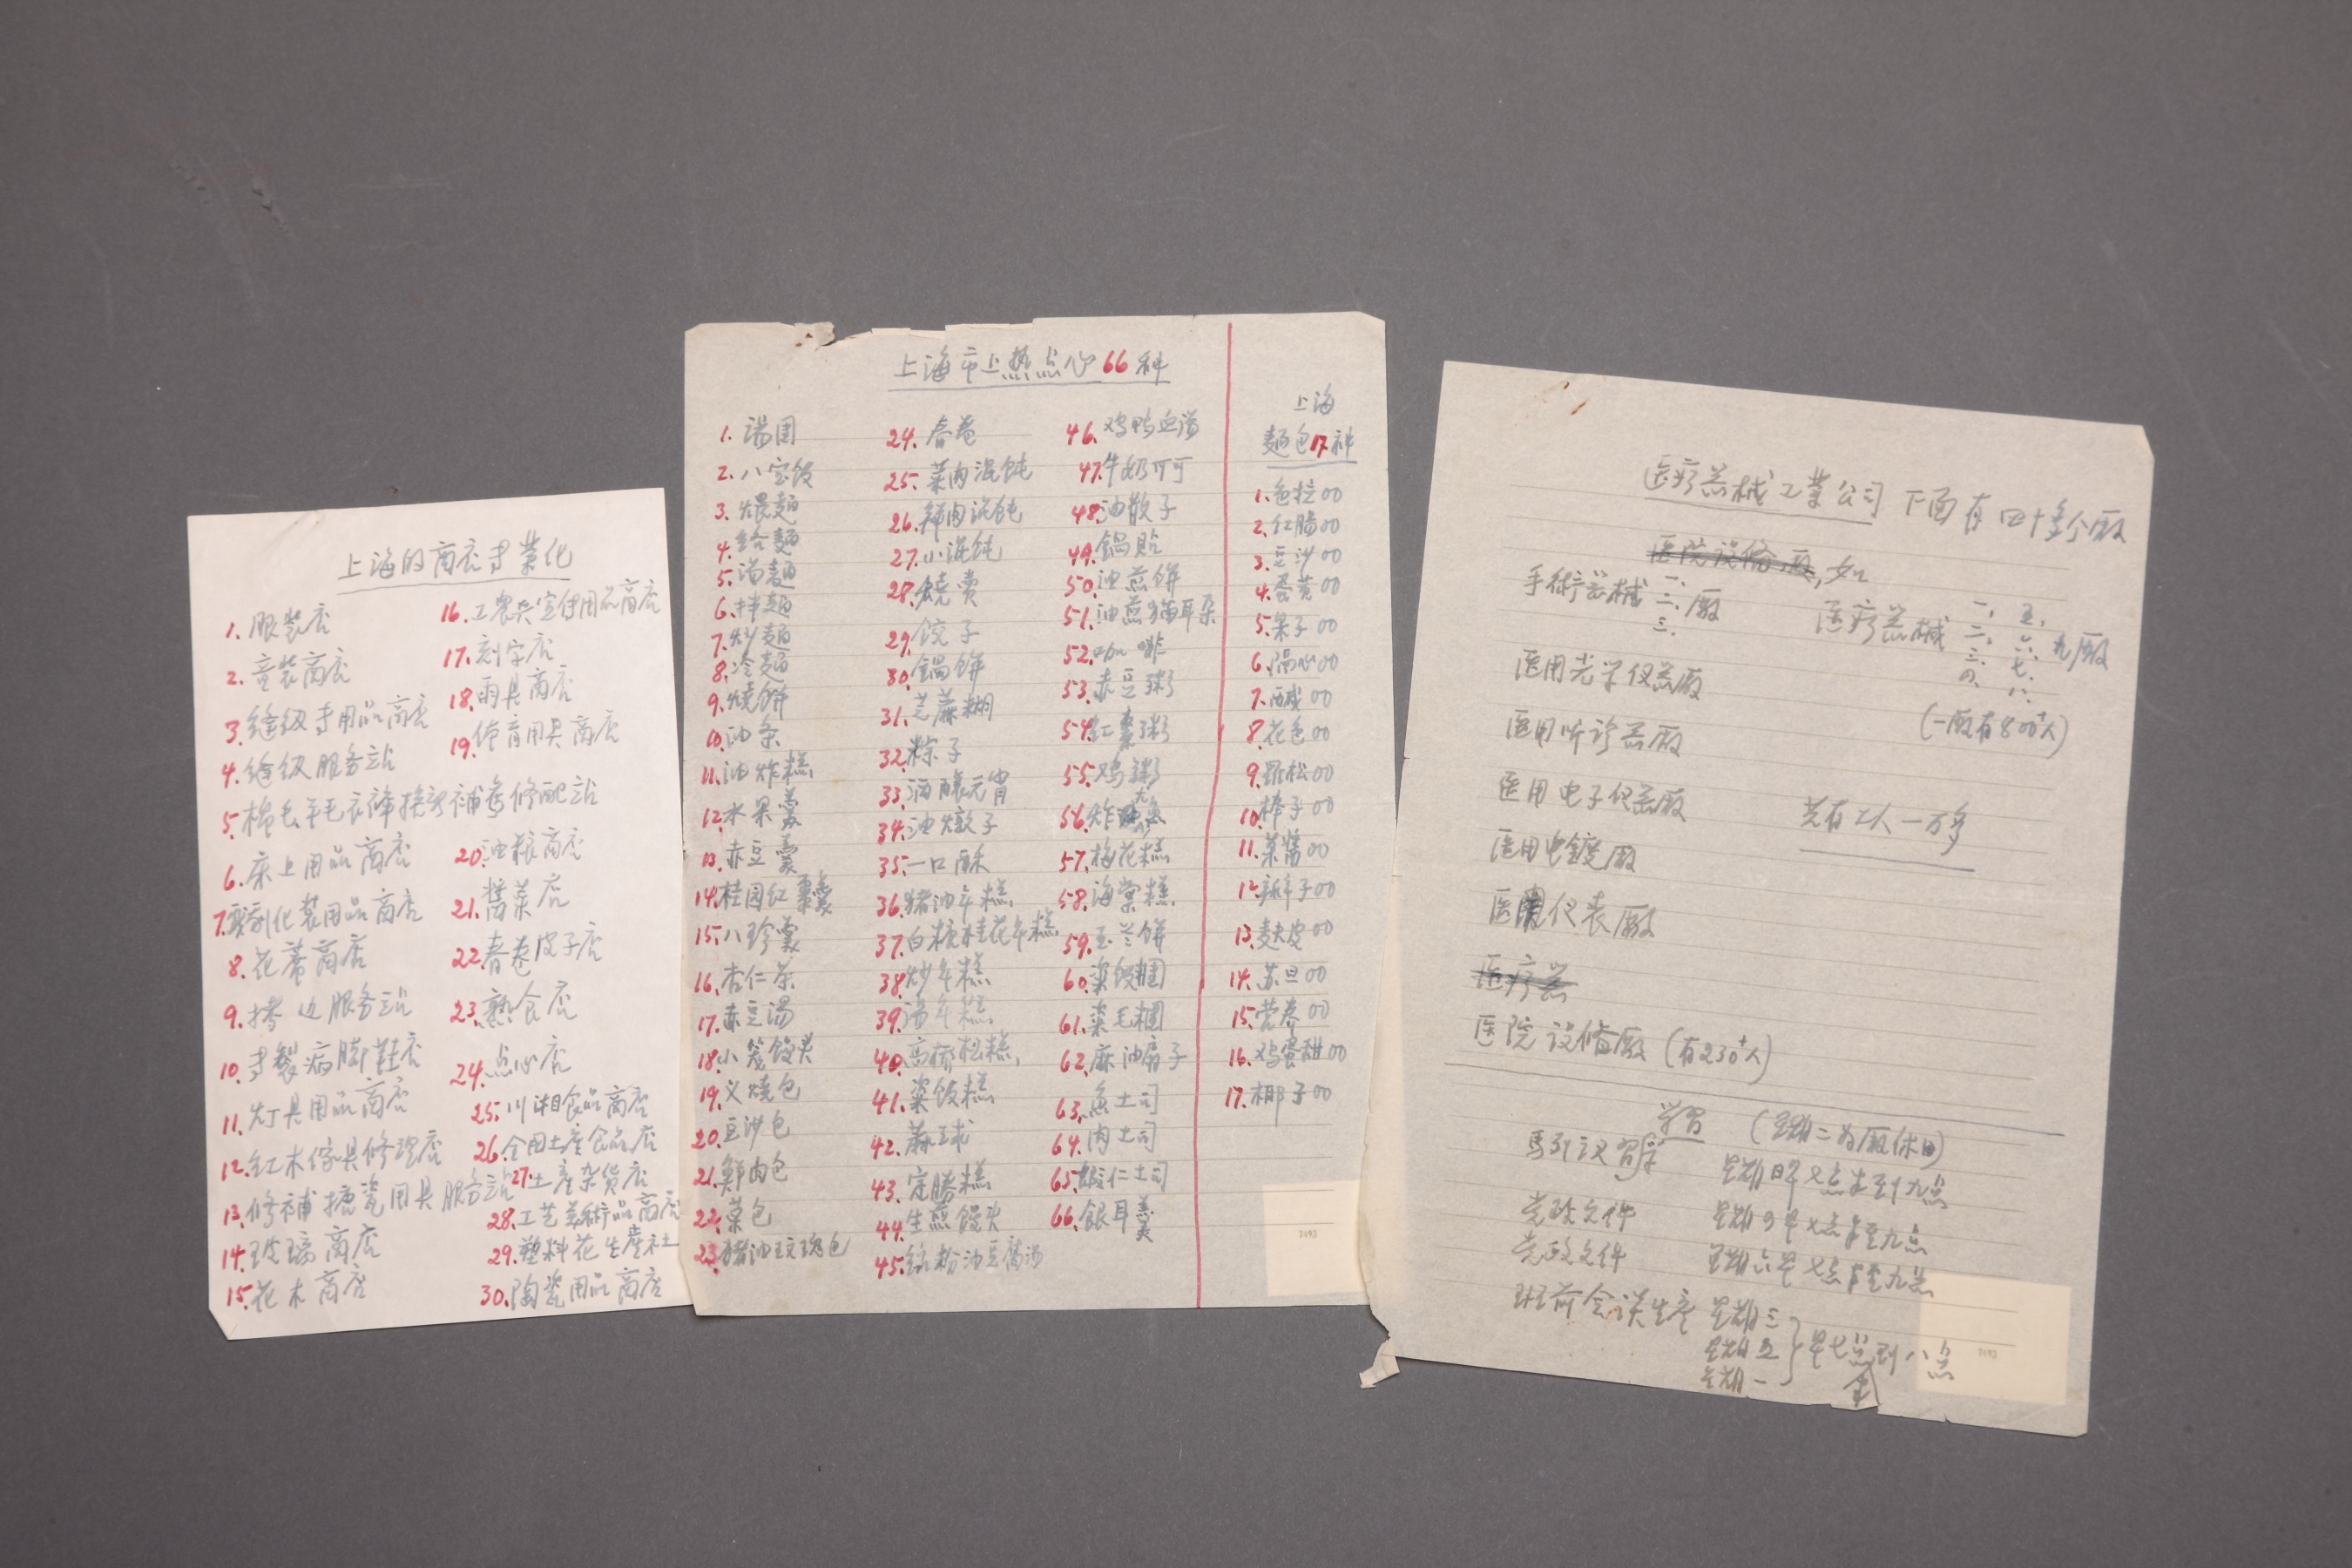 上海的商店专業化
1. 服装店
2. 童装商店
3. 缝纫专用品商店
4. 缝纫服务站
5. 棉毛羊毛衣褲換新補旧修配站
6. 床上用品商店
7. 戏剧化装用品商店
8. 花蕾商店
9. 拷边服务站
10. 专製病脚鞋店
11. 灯具用品商店
12. 紅木傢具修理店
13. 修補搪瓷用具服务站
14. 玻璃商店
15. 花木商店
16. 工農兵宣传用品商店
17. 刻字店
18. 雨具商店
19. 体育用具商店
20. 油粮商店
21. 醬菜店
22. 春卷皮子店
23. 熟食店
24. 点心店
25. 川湘食品商店
26. 全国土産食品店
27. 土産杂货店
28. 工艺美術品商店
29. 塑料花生産社
30. 陶瓷用品商店
上海市上热点心66种
1. 湯団
2. 八宝饭
3. 煨麵
4.
5. 湯麵
6. 拌麵
7. 炒麵
8. 冷麵
9. 燒餅
10. 油条
11. 油炸糕
12. 水果羹
13. 赤豆羹
14. 桂园红棗羹
15. 八珍羹
16. 杏仁茶
17. 赤豆湯
18. 小笼馒头
19. 叉燒包
20. 豆沙包
21. 鮮肉包
22. 菜包
23. 猪油玫瑰包
24. 春卷
25. 菜肉混飩
26. 鮮肉混飩
27. 小混飩
28. 燒賣
29. 饺子
30. 鍋餅
31. 芝蔴糊
32. 粽子
33. 酒釀元宵
34. 油墩子
35. 一口酥
36. 猪油年糕
37. 白糖桂花年糕
38. 炒年糕
39. 湯年糕
40. 高桥松糕
41. 粢饭糕
42. 蔴球
43. 定勝糕
44. 生煎馒头
45. 線粉油豆腐汤
46. 鸡鸭血湯
47. 牛奶可可
48. 油散子
49. 鍋貼
50. 油煎餅
51. 油煎猫耳朵
52. 咖啡
53. 赤豆粥
54. 红棗粥
55. 鸡粥
56. 炸魷魚
57. 梅花糕
58. 海棠糕
59. 玉兰餅
60. 粢饭糰
61. 粢毛糰
62. 麻油扇子
63. 魚土司
64. 肉土司
65. 蝦仁土司
66. 銀耳羹
上海
麵包17种
1. 色拉00
2. 红腸00
3. 豆沙00
4. 蛋黄00
5. 果子00
6. 隔心00
7. 咸00
8. 花色00
9. 羅松00
10. 棒子00
11. 菜醬00
12. 辮子00
13. 麩皮00
14. 苏旦00
15. 营养00
16. 鸡蛋甜00
17. 椰子00
7493
医疗器械工業公司下面有四十多个廠
医院设备廠,如
手術器械一、二、三、廠
医疗器械一、二、三、四、五、六、七、八、九廠
(一廠有800+人)
医用光学仪器廠
医用听诊器廠
医用电子仪器廠
共有工人一万多
医用电鍍廠
医用仪表廠
医疗器
医院设备廠(有230+人)
学習 (星期二为廠休日)
馬列主义學習 星期日早七点半到九点
党政文件 星期四早七点半至九点
党政文件 星期六早七点半至九点
班前会谈生産 星期三
星期五
星期一
早七点到八点
7493